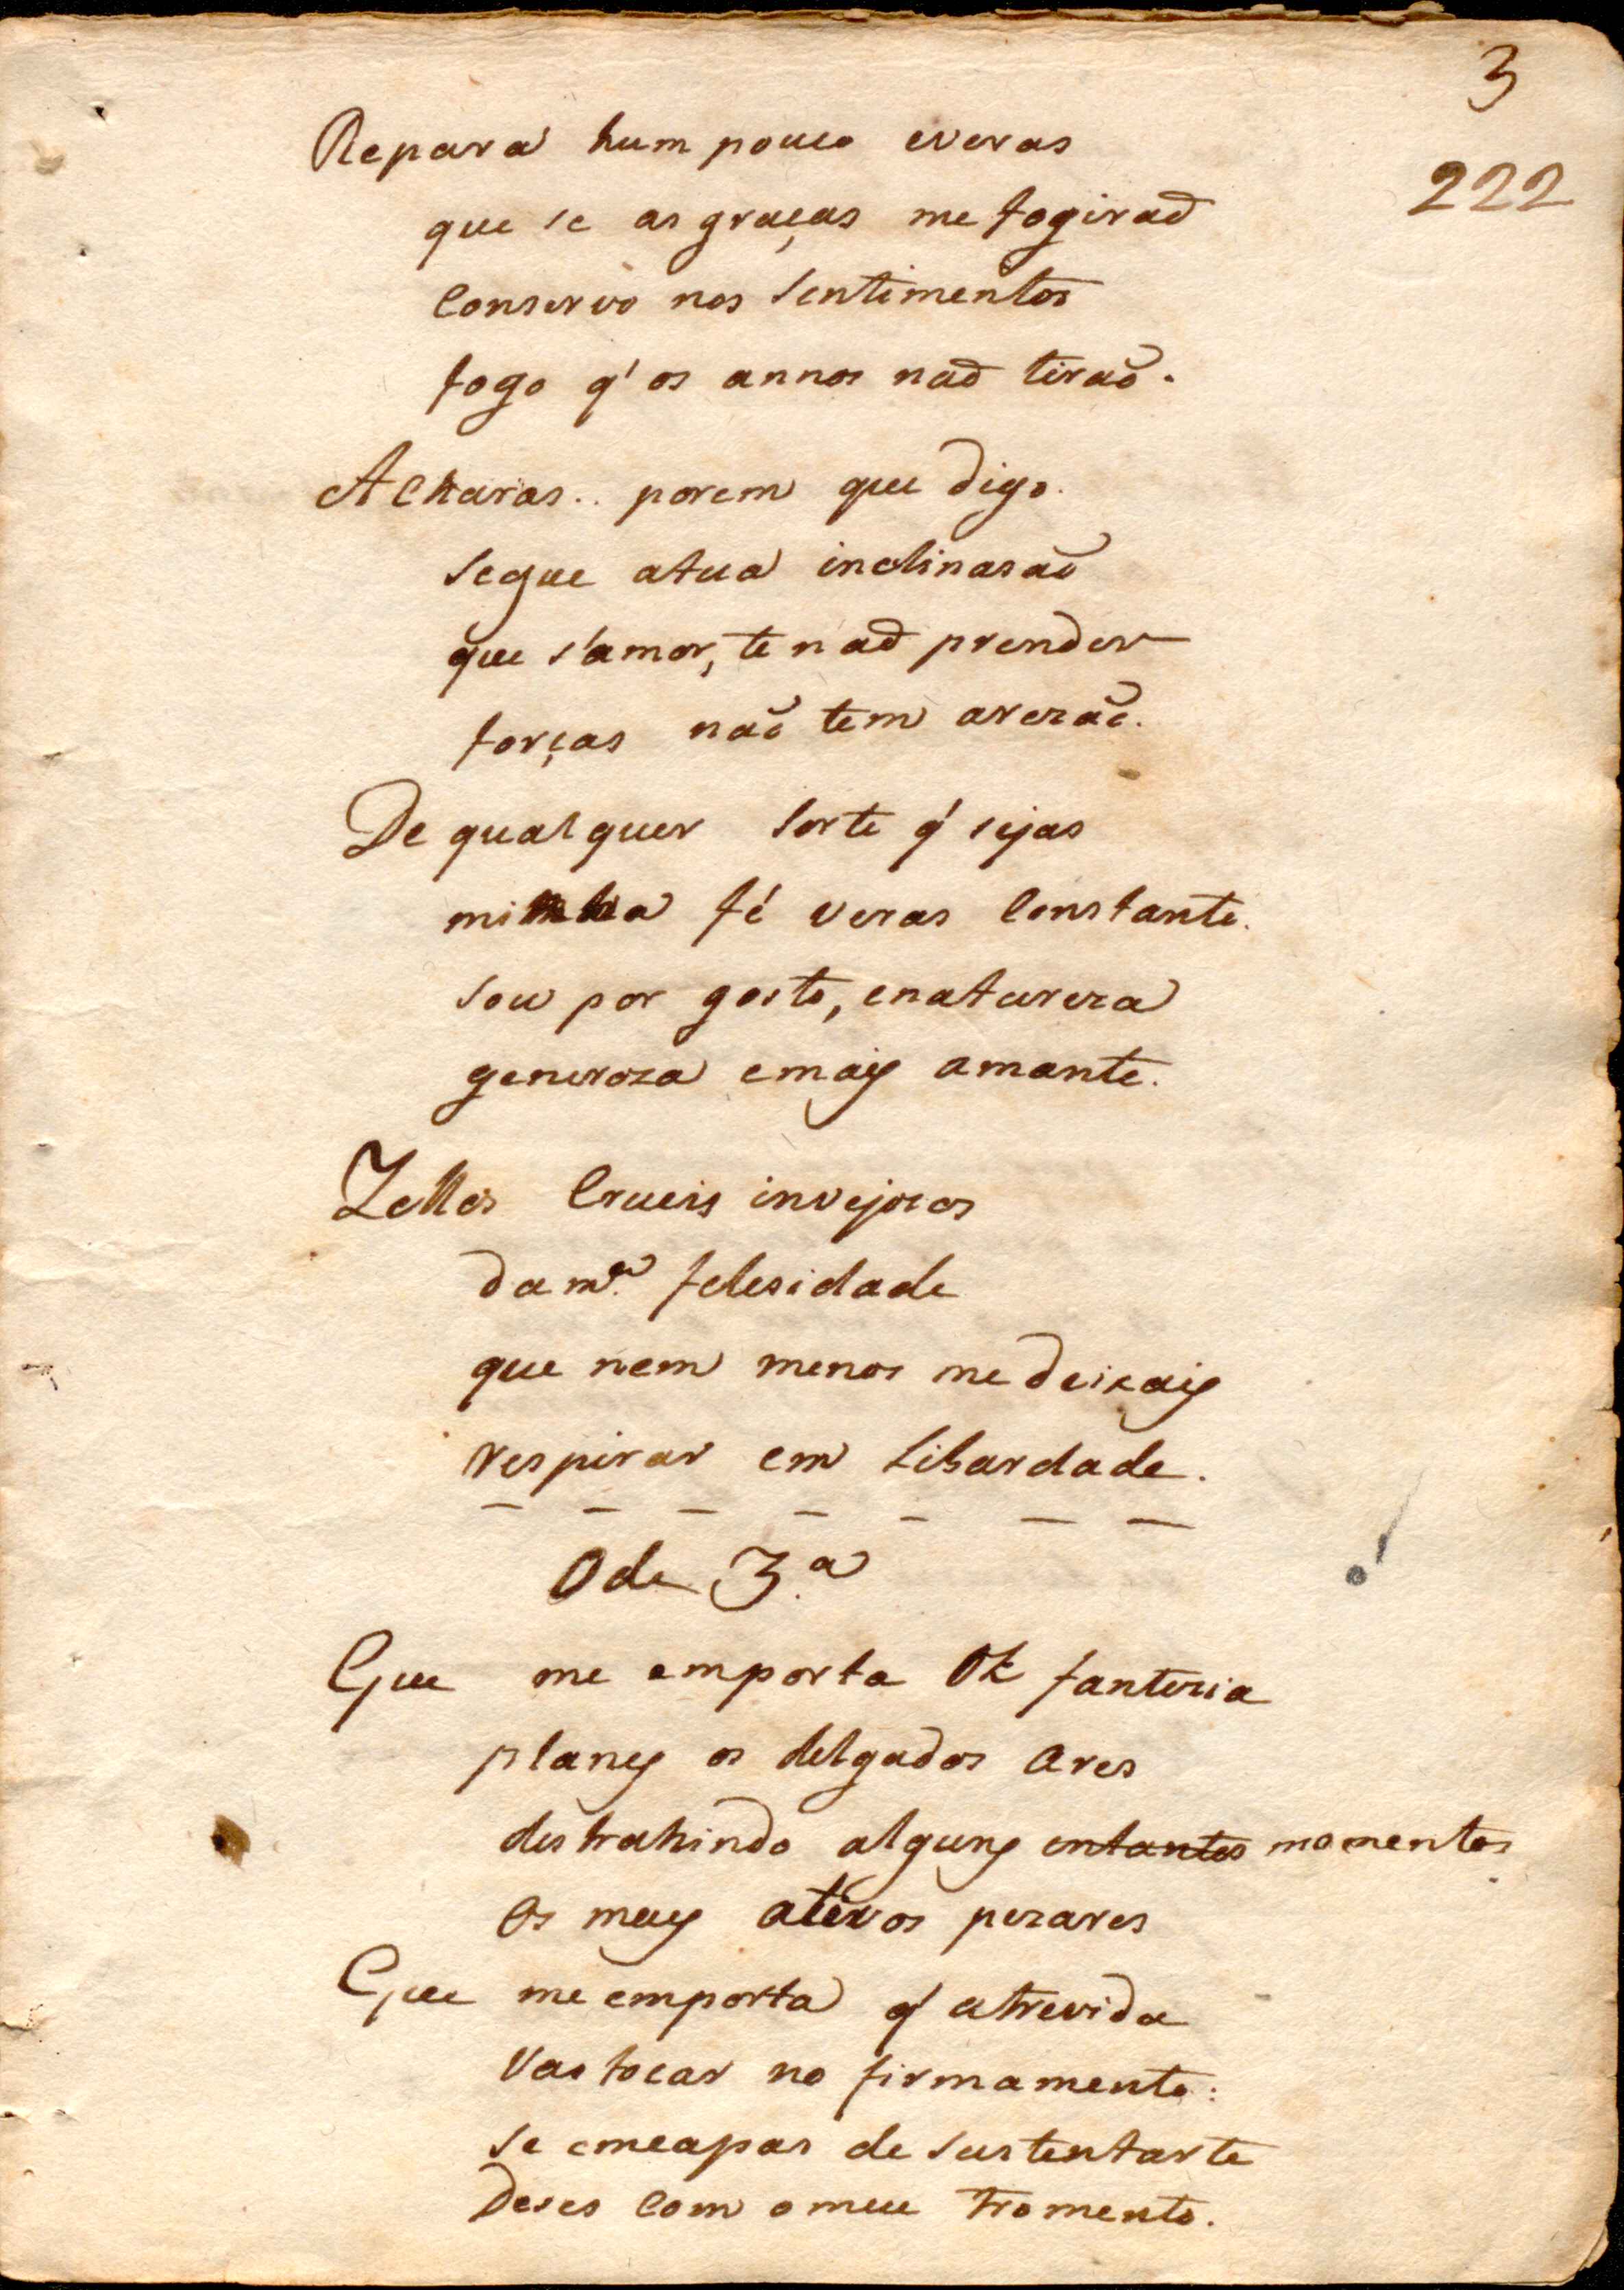 3
222
Repara hum pouco everas
que se as graças me fogiraõ
Conservo nos Sentimentos
fogo q' os annos naõ tiraõ.
Acharas.. porem que digo.
segue atua inclinasaõ
que s'amor, te naõ prender
forças naõ tem arezaõ.
De qualquer Sorte q' sejas
minha fé veras Constante.
sou por gosto, enatureza
generoza emais amante.
Zellos Crueis invejozos
da m.ª felesidade
que nem menos me deixais
respirar em Libardade.
— — — — — — —
Ode 3.ª
Que me emporta Oh fantezia
planes os delgados Ares
destrahindo alguns entantes momentos
Os meus ativos pezares
Que me emporta q' atrevida
Vas tocar no firmamento:
se emcapas de sustentarte
Deses Com o meu tromento.